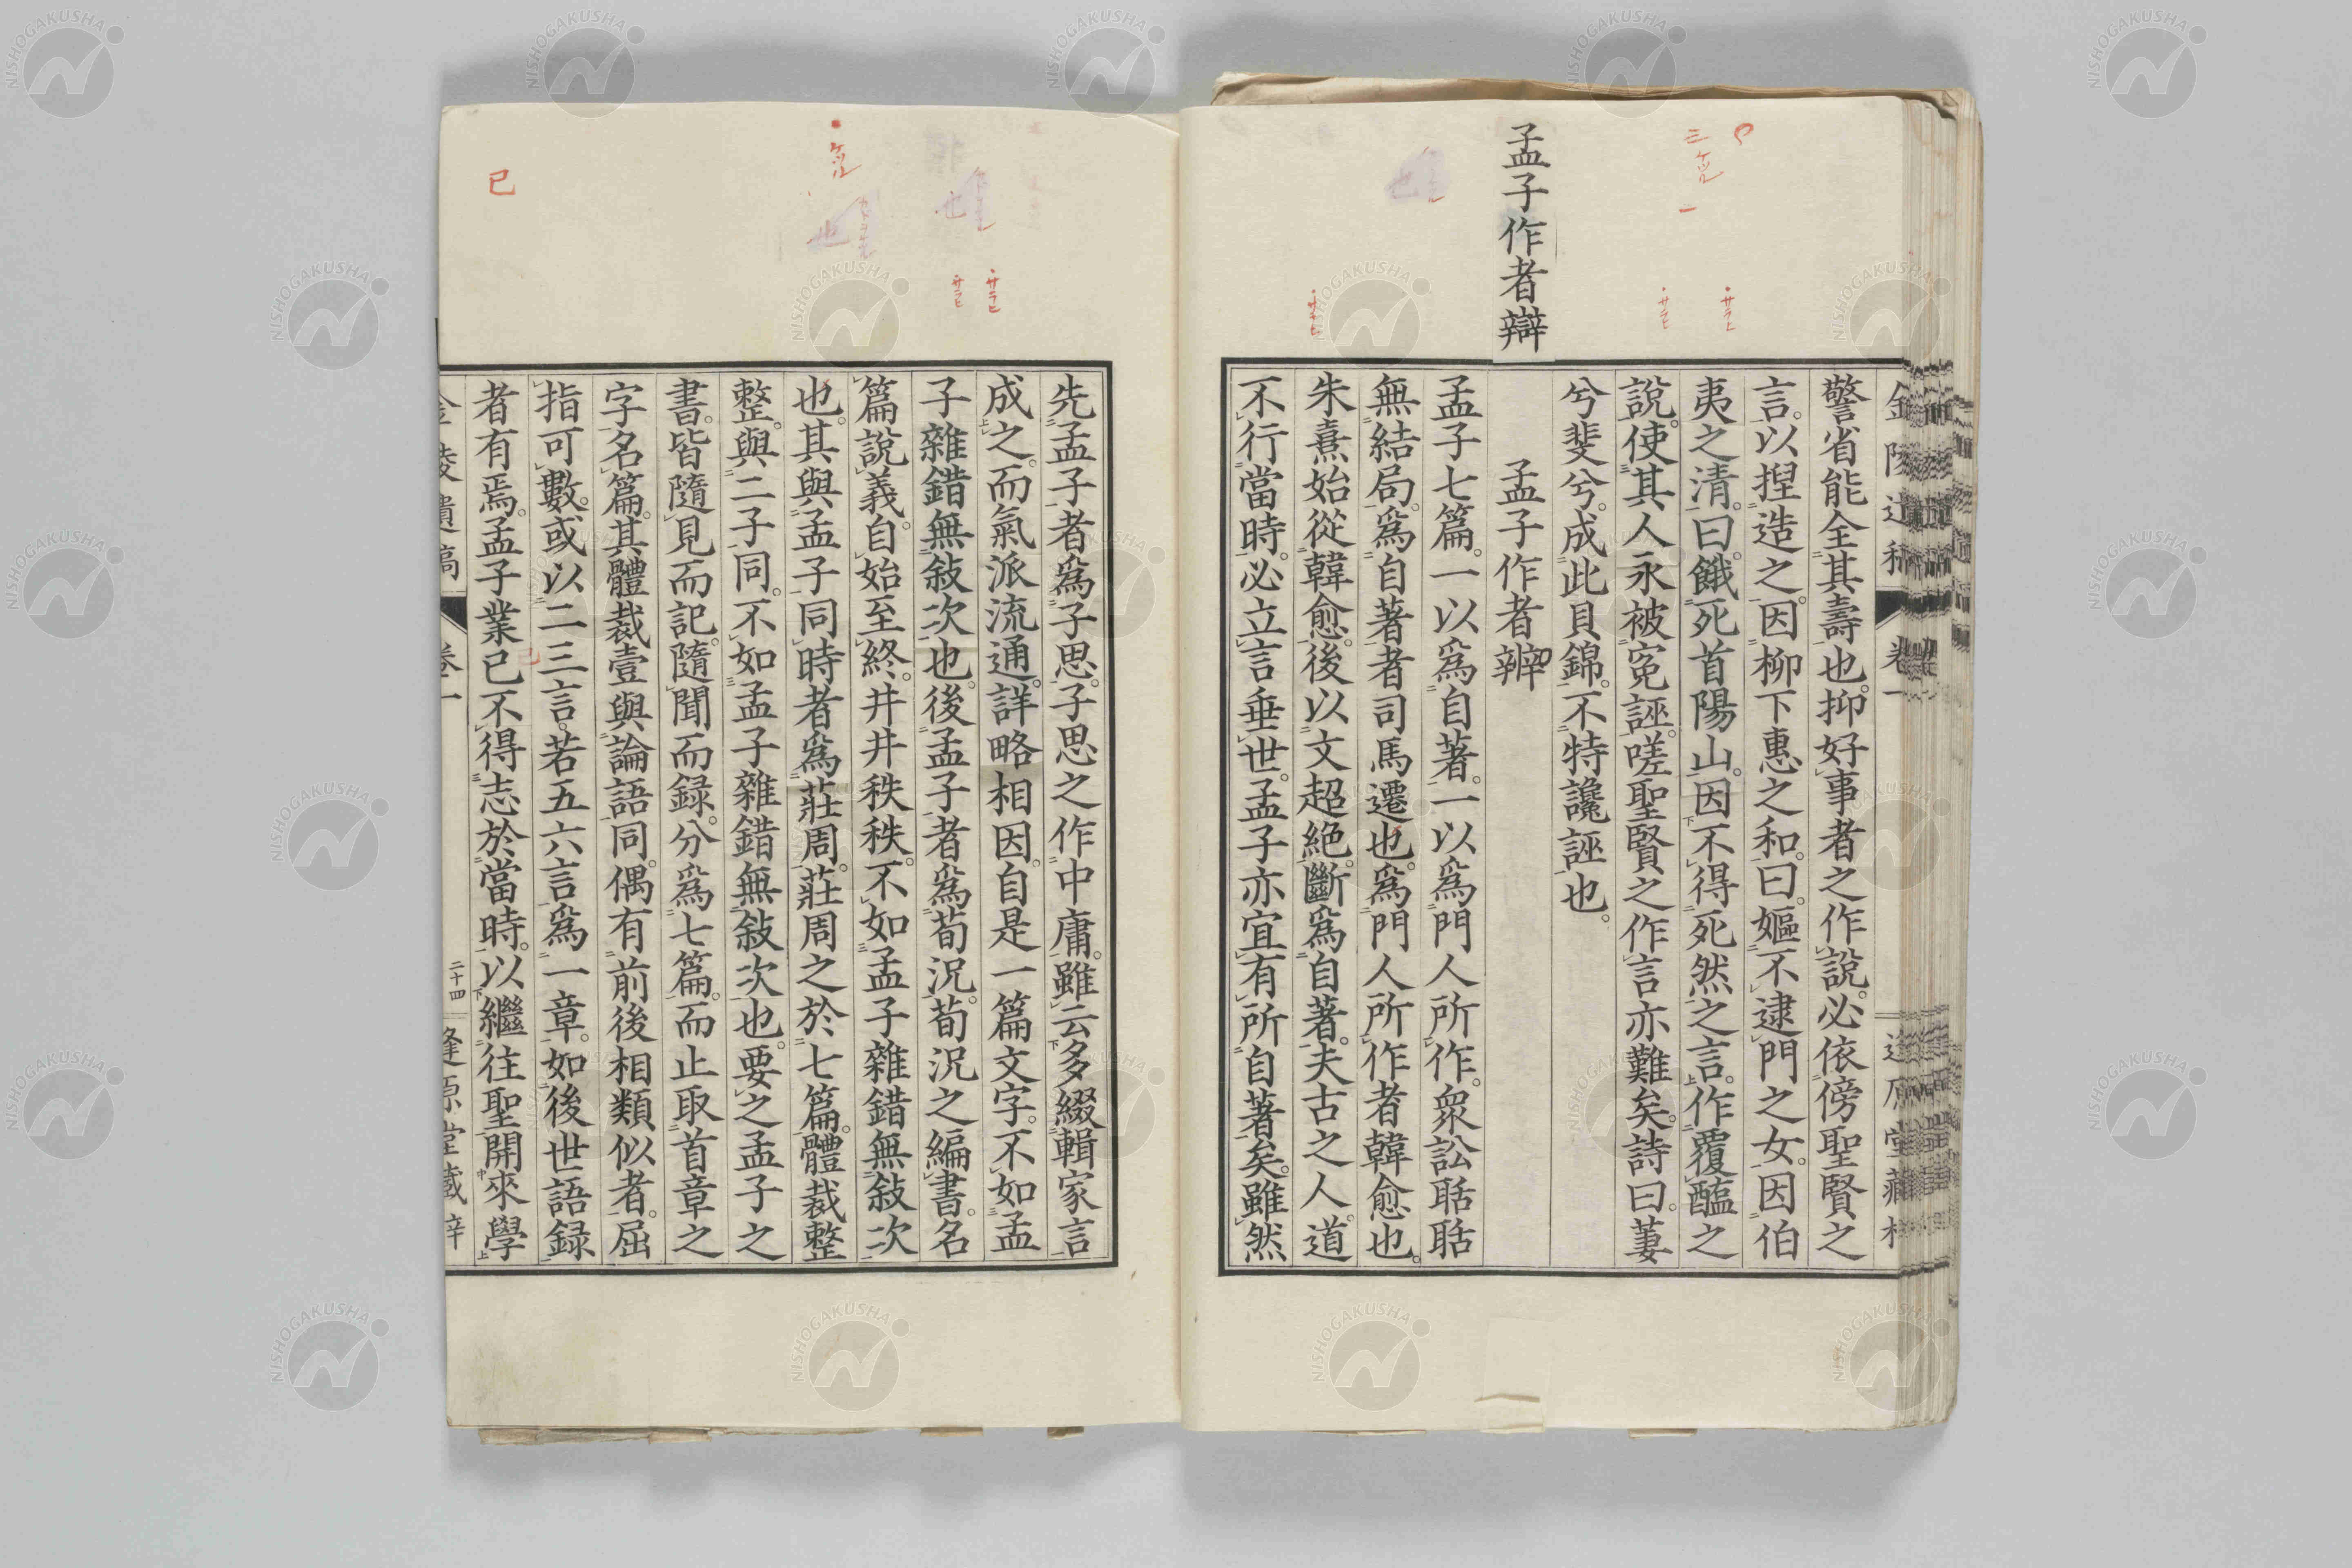 孟子作者辯
警省能全其壽也。抑好事者之作說。必依傍聖賢之
言。以揑造之。因柳下惠之和。曰。嫗不逮門之女。因伯
夷之清。曰。餓死首陽山。因不得死然之言。作覆醢之
說。使其人永被寃誣。嗟聖賢之作言亦難矣。詩曰。萋
兮斐兮。成此貝錦。不特讒誣也。
孟子作者辨
孟子七篇。一以爲自著。一以爲門人所作。衆訟聒聒
無結局。爲自著者司馬遷也。爲門人所作者韓愈也。
朱熹始從韓愈。後以文超絶。斷爲自著。夫古之人。道
不行當時。必立言垂世。孟子亦宜有所自著矣。雖然
先孟子者爲子思。子思之作中庸。雖云多綴輯家言
成之。而氣派流通。詳略相因。自是一篇文字。不如孟
子雜錯無敍次也。後孟子者爲荀況。荀況之編書。名
篇說義。自始至終。井井秩秩。不如孟子雜錯無敍次
也。其與孟子同時者爲莊周。莊周之於七篇。體裁整
整。與二子同。不如孟子雜錯無敍次也。要之孟子之
書。皆隨見而記。隨聞而録。分爲七篇。而止取首章之
字名篇。其體裁壹與論語同。偶有前後相類似者。屈
指可數。或以二三言。若五六言爲一章。如後世語録
者有焉。孟子業已不得志於當時。以繼往聖開來學
卷一
二十四
NISHOGAKUSHA